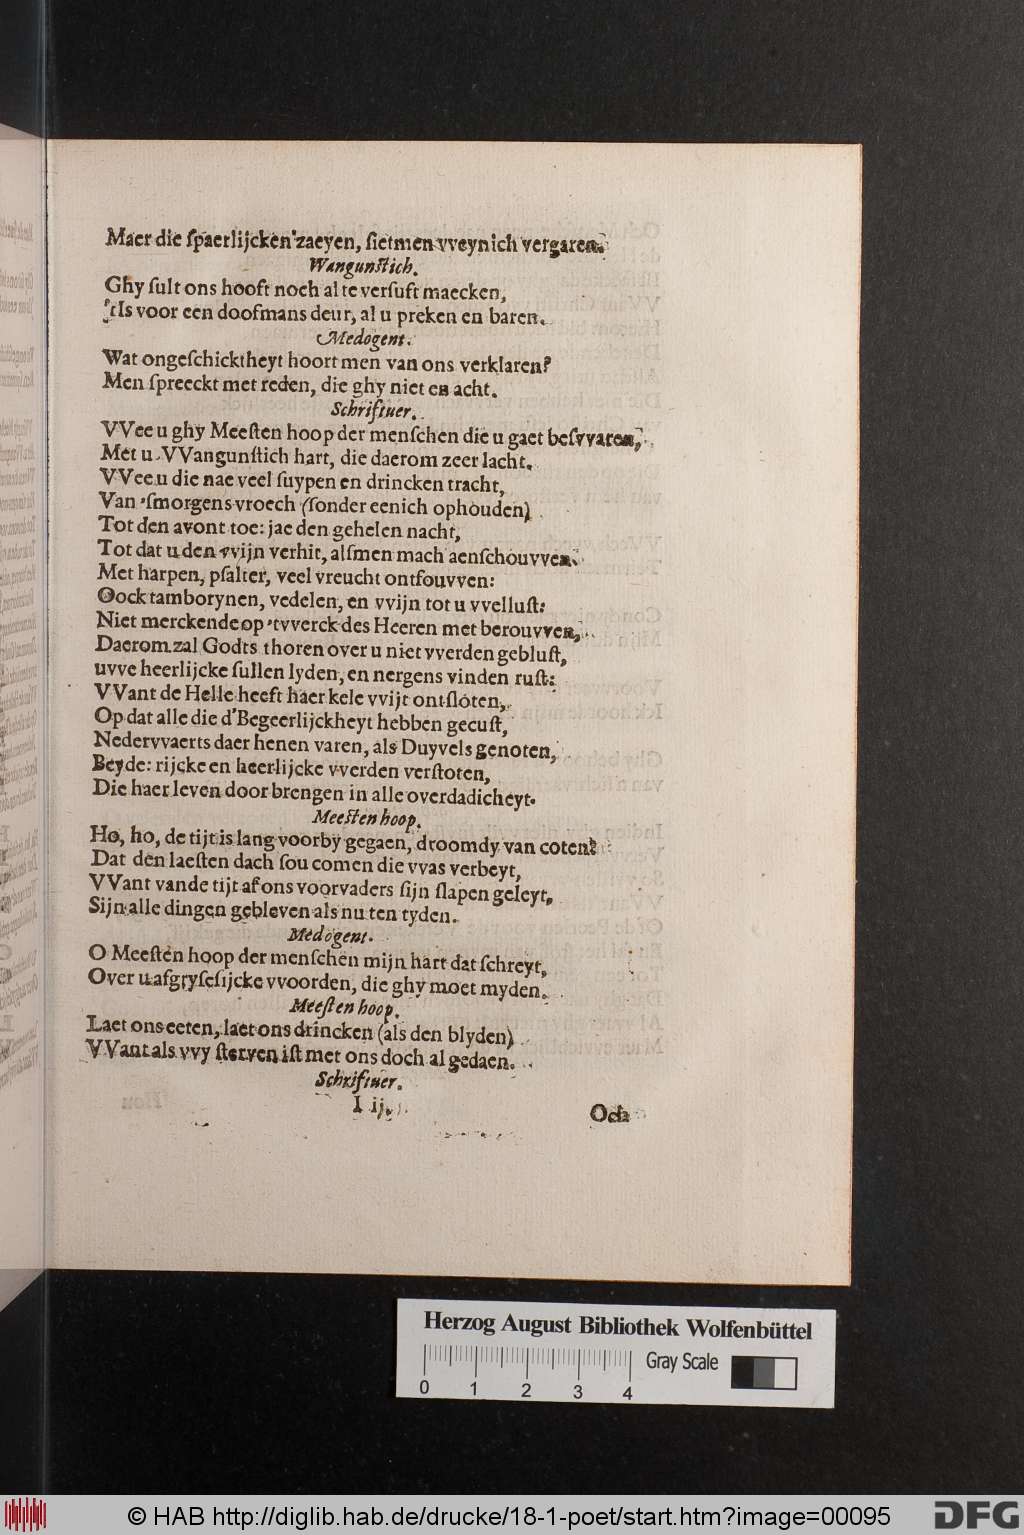 Maer die ſpaerlijcken zaeyen, ſietmen vveynich vergaren.
Wangunſtich.
Ghy ſult ons hooft noch al te verſuft maecken,
'tIs voor een doofmans deur, al u preken en baren.
Medogent.
Wat ongeſchicktheyt hoort men van ons verklaren?
Men ſpreeckt met reden, die ghy niet en acht.
Schriftuer.
VVee u ghy Meeſten hoop der menſchen die u gaet beſvvaren,
Met u VVangunſtich hart, die daerom zeer lacht.
VVee u die nae veel ſuypen en drincken tracht,
Van 'ſmorgens vroech (ſonder eenich ophouden)
Tot den avont toe: jae den gehelen nacht,
Tot dat u den vvijn verhit, alſmen mach aenſchouvven.
Met harpen, pſalter, veel vreucht ontfouvven:
Oock tamborynen, vedelen, en vvijn tot u vvelluſt:
Niet merckende op 'tvverck des Heeren met berouvven,
Daerom zal Godts thoren over u niet vverden gebluſt,
uvve heerlijcke ſullen lyden, en nergens vinden ruſt:
VVant de Helle heeft haer kele vvijt ontſloten,
Op dat alle die d'Begeerlijckheyt hebben gecuſt,
Nedervvaerts daer henen varen, als Duyvels genoten,
Beyde: rijcke en heerlijcke vverden verſtoten,
Die haer leven door brengen in alle overdadicheyt.
Meeſten hoop.
Ho, ho, de tijt is lang voorby gegaen, droomdy van coten?
Dat den laeſten dach ſou comen die vvas verbeyt,
VVant vande tijt af ons voorvaders ſijn ſlapen geleyt,
Sijn alle dingen gebleven als nu ten tyden.
Medogent.
O Meeſten hoop der menſchen mijn hart dat ſchreyt,
Over u afgryſeſijcke vvoorden, die ghy moet myden.
Meeſten hoop.
Laet ons eeten, laet ons drincken (als den blyden)
VVant als vvy ſterven iſt met ons doch al gedaen.
Schriftuer.
I ij.
Och
Herzog August Bibliothek Wolfenbüttel
Gray Scale
0 1 2 3 4
© HAB http://diglib.hab.de/drucke/18-1-poet/start.htm?image=00095
DFG